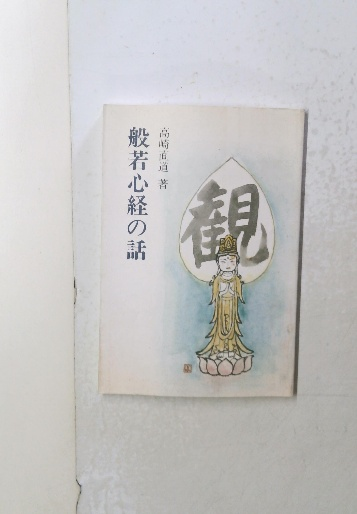 般若心経の話
高崎直道 著
観